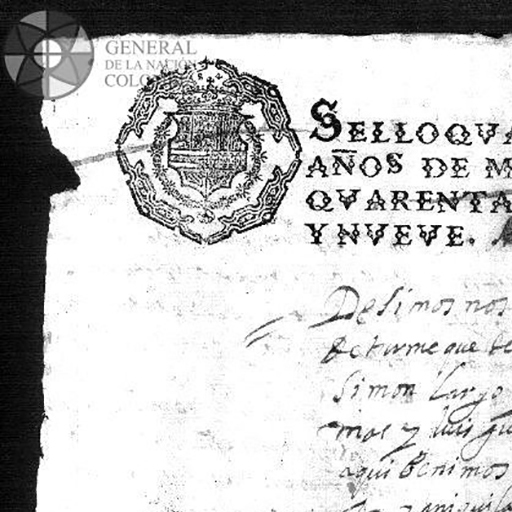 GENERAL
DE LA NACIÓN
COLO
SELLOQVA
AÑOS DE M
QVARENTA
YNVEVE.
Desimos nos
Simon largo
mos y luis gu
aqui Benimos